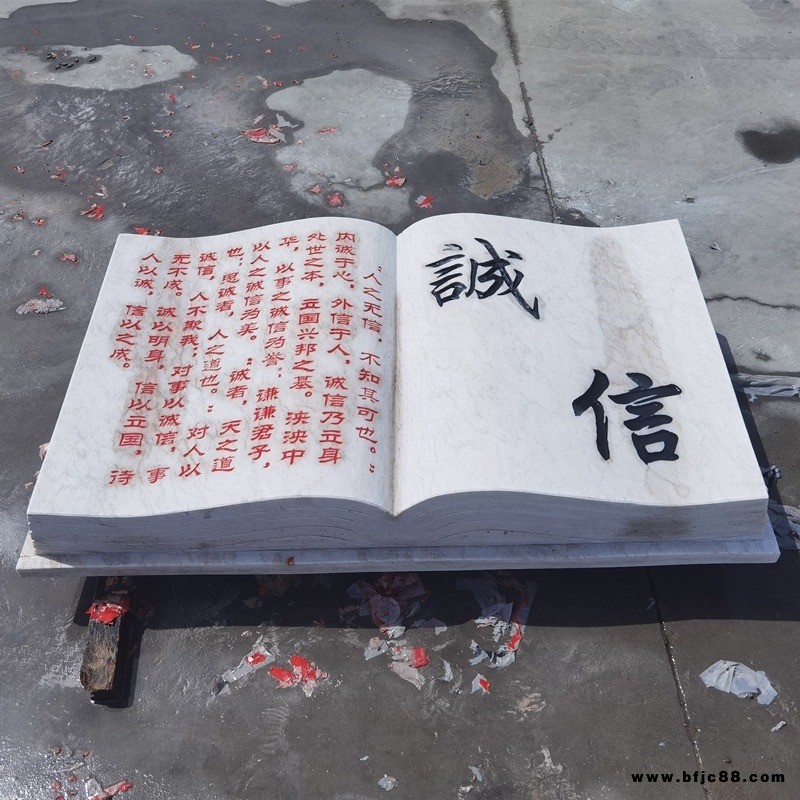 誠
信
"人之无信，不知其可也。"
内诚于心，外信于人，诚信乃立身
处世之本，立国兴邦之基。泱泱中
华，以事之诚信为誉；谦谦君子，
以人之诚信为美。"诚者，天之道
也；思诚者，人之道也。"对人以
诚信，人不欺我；对事以诚信，事
无不成。诚以明身，信以立国，待
人以诚，信以之成。
www.bfjc88.com